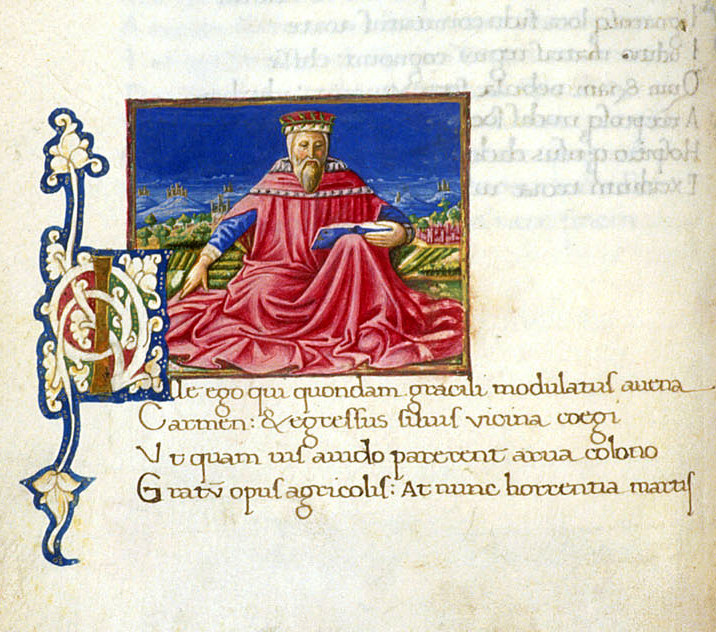 Ille ego qui quondam gracili modulatus auena
Carmen: & egressus siluis vicina coegi
Vt quam uis auido parerent arua colono
Gratū opus agricolis: At nunc horrentia martis